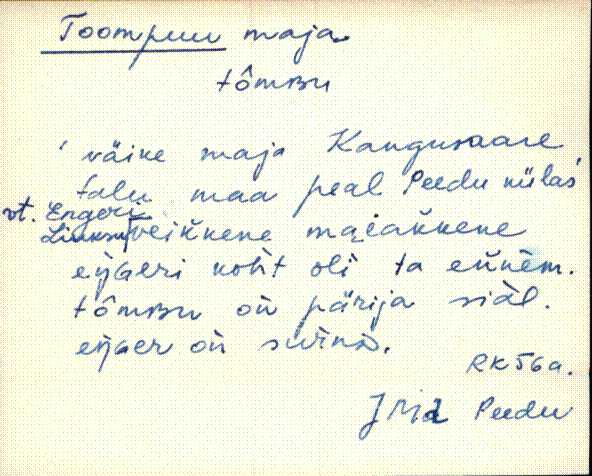 Toompuu maja
tômʙu
' väike maja Kangrusaare
talu maa peal Peedu külas'
vt. Engeri
veikkene maiakkene
eŋɢeri koht oli ta ennem.
tômʙu on pärija siäl.
eŋɢer on surnᴅ.
RK 56a.
Peedu